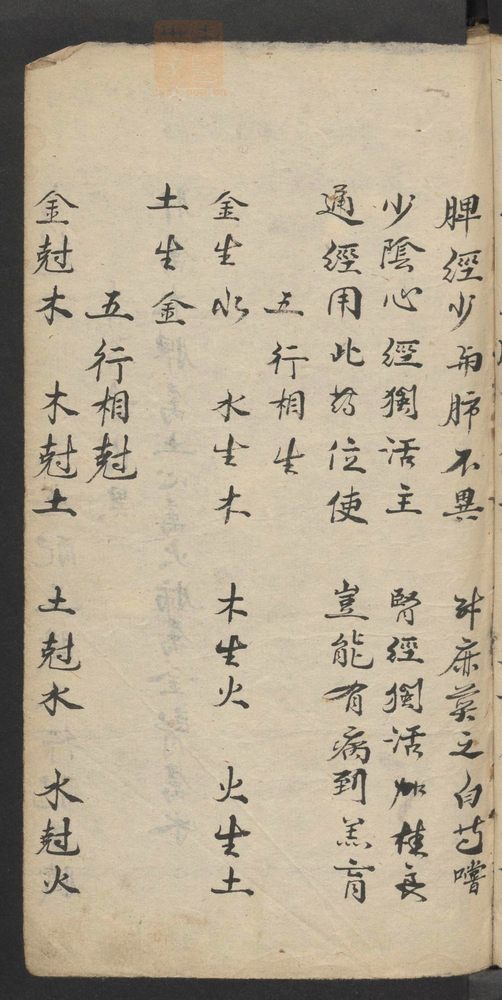 脾經少與肺不異　升麻莫之白芍嚐
少陰心經獨活主　腎經獨活加桂良
通經用此药位使　豈能有病到羔肓
五行相生
金生水　水生木　木生火　火生土
土生金
五行相尅
金尅木　木尅土　土尅水　水尅火